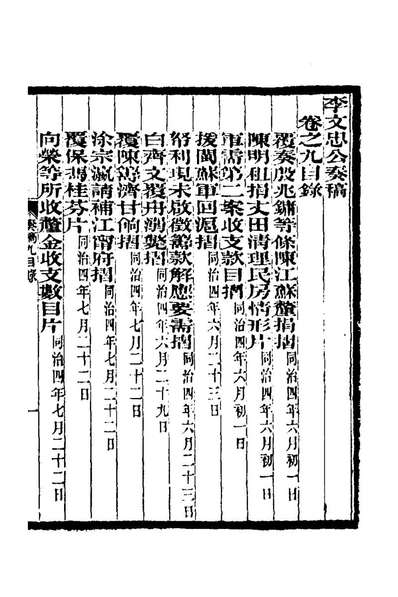 李文忠公奏稿
卷之九目錄
覆奏殷兆鏞等條陳江蘇釐捐摺同治四年六月初一日
陳明租捐丈田清理民房情形片同治四年六月初一日
軍需第二案收支款目摺同治四年六月初一日
援閩蘇軍回滬摺同治四年六月二十三日
利現未啟徵籌款解應要需摺同治四年六月二十三日
白齊文覆舟溺斃摺同治四年六月二十九日
覆陳籌濟甘餉摺同治四年七月二十二日
涂宗瀛請補江甯府摺同治四年七月二十二日
覆保馮桂芬片同治四年七月二十二日
向榮等所收釐金收支數目片同治四年七月二十二日
奏稿九目錄
一